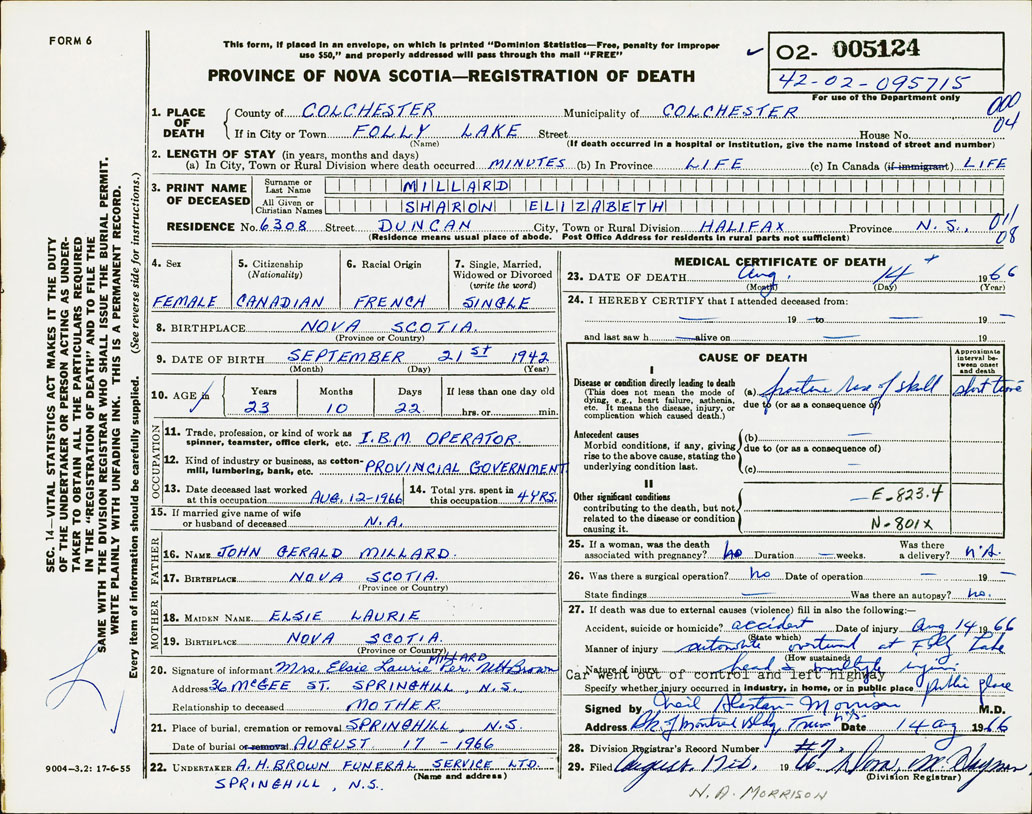 FORM 6
This form, if placed in an envelope, on which is printed "Dominion Statistics—Free, penalty for improper
use $50," and properly addressed will pass through the mail "FREE"
PROVINCE OF NOVA SCOTIA—REGISTRATION OF DEATH
02- 005124
42-02-095715
For use of the Department only
000
04
1. PLACE OF DEATH
County of COLCHESTER Municipality of COLCHESTER
If in City or Town FOLLY LAKE Street House No.
(Name) (If death occurred in a hospital or institution, give the name instead of street and number)
2. LENGTH OF STAY (in years, months and days)
(a) In City, Town or Rural Division where death occurred MINUTES (b) In Province LIFE (c) In Canada (if immigrant) LIFE
3. PRINT NAME OF DECEASED
Surname or Last Name MILLARD
All Given or Christian Names SHARON ELIZABETH
RESIDENCE No. 6308 Street DUNCAN City, Town or Rural Division HALIFAX Province N.S.,
(Residence means usual place of abode. Post Office Address for residents in rural parts not sufficient)
011
08
4. Sex
FEMALE
5. Citizenship
(Nationality)
CANADIAN
6. Racial Origin
FRENCH
7. Single, Married,
Widowed or Divorced
(write the word)
SINGLE
8. BIRTHPLACE NOVA SCOTIA.
(Province or Country)
9. DATE OF BIRTH SEPTEMBER 21st 1942
(Month) (Day) (Year)
10. AGE
Years Months Days If less than one day old
23 10 22 hrs. or min.
OCCUPATION
11. Trade, profession, or kind of work as
spinner, teamster, office clerk, etc. I.B.M OPERATOR.
12. Kind of industry or business, as cotton-
mill, lumbering, bank, etc. PROVINCIAL GOVERNMENT
13. Date deceased last worked
at this occupation AUG. 12-1966
14. Total yrs. spent in
this occupation 4 YRS.
15. If married give name of wife
or husband of deceased N.A.
FATHER
16. NAME JOHN GERALD MILLARD.
17. BIRTHPLACE NOVA SCOTIA.
(Province or Country)
MOTHER
18. MAIDEN NAME ELSIE LAURIE
19. BIRTHPLACE NOVA SCOTIA.
(Province or Country)
MILLARD
20. Signature of informant Mrs. Elsie Laurie Per. Brown
Address 36 MCGEE ST. SPRINGHILL, N.S.
Relationship to deceased MOTHER
21. Place of burial, cremation or removal SPRINGHILL, N.S.
Date of burial or removal AUGUST 17 - 1966
22. UNDERTAKER A.H. BROWN FUNERAL SERVICE LTD.
(Name and address)
SPRINGHILL, N.S.
MEDICAL CERTIFICATE OF DEATH
23. DATE OF DEATH Aug. 14 1966
(Month) (Day) (Year)
24. I HEREBY CERTIFY that I attended deceased from:
— 19 to — 19 —
and last saw h — alive on — 19 —
CAUSE OF DEATH
Approximate interval between onset and death
I
Disease or condition directly leading to death
(This does not mean the mode of
dying, e.g., heart failure, asthenia,
etc. It means the disease, injury, or
complication which caused death.)
(a) fracture base of skull short time
due to (or as a consequence of)
Antecedent causes
Morbid conditions, if any, giving
rise to the above cause, stating the
underlying condition last.
(b) —
due to (or as a consequence of)
(c) —
II
Other significant conditions
contributing to the death, but not
related to the disease or condition
causing it.
— E-823.4
N-801X
25. If a woman, was the death
associated with pregnancy? no Duration — weeks. Was there
a delivery? n'A.
26. Was there a surgical operation? no Date of operation — 19 —
State findings — Was there an autopsy? no.
27. If death was due to external causes (violence) fill in also the following:—
Accident, suicide or homicide? accident Date of injury Aug 14 1966
(State which)
Manner of injury automobile overturned at Folly Lake
(How sustained)
Nature of injury head & multiple injuries
Car went out of control and left highway
Specify whether injury occurred in industry, in home, or in public place public place
Signed by Neil Morrison M.D.
Address Bk of Montreal Bldg, Truro N.S. Date 14 Aug 1966
28. Division Registrar's Record Number #7.
29. Filed August 17th. 1966
(Division Registrar)
N.A. MORRISON
SEC. 14—VITAL STATISTICS ACT MAKES IT THE DUTY
OF THE UNDERTAKER OR PERSON ACTING AS UNDER-
TAKER TO OBTAIN ALL THE PARTICULARS REQUIRED
IN THE "REGISTRATION OF DEATH" AND TO FILE THE
SAME WITH THE DIVISION REGISTRAR WHO SHALL ISSUE THE BURIAL PERMIT.
WRITE PLAINLY WITH UNFADING INK. THIS IS A PERMANENT RECORD.
Every item of information should be carefully supplied. (See reverse side for instructions.)
9004-3.2: 17-6-55